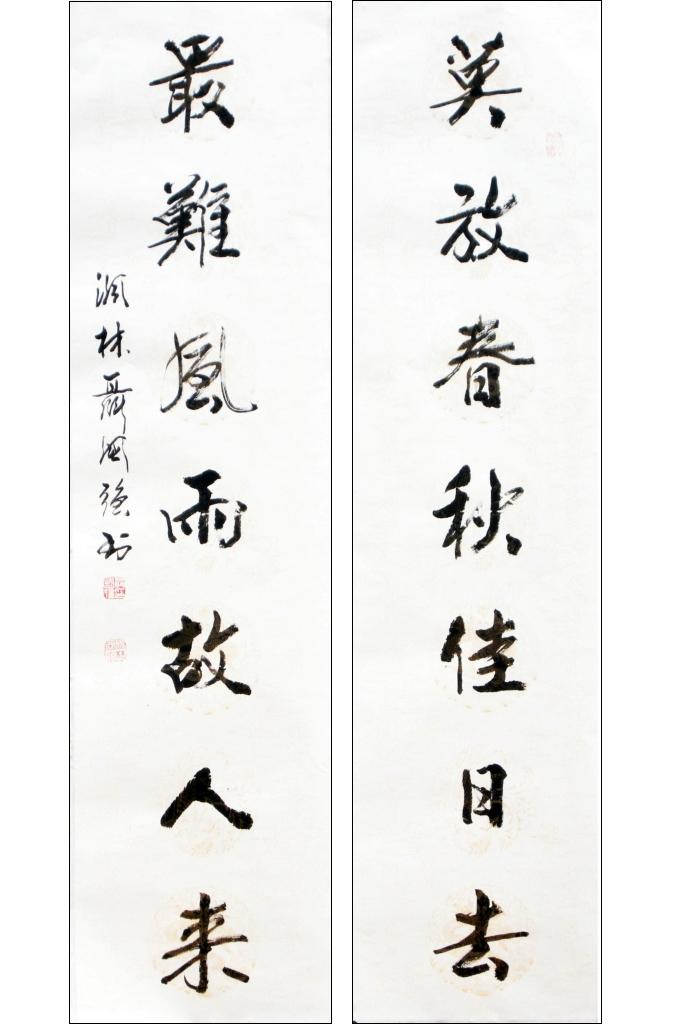 莫放春秋佳日去
最難風雨故人来
林聶國強书